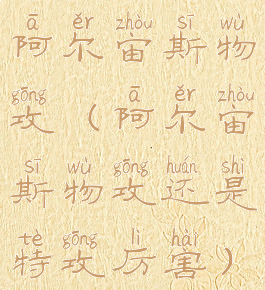 ā ěr zhòu sī wù
阿尔宙斯物
gōng ā ěr zhòu
攻（阿尔宙
sī wù gōng huán shì
斯物攻还是
tè gōng lì hài
特攻厉害）